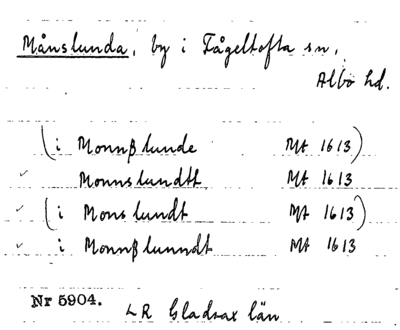 Månslunda, by i Fågeltofta sn,
Albo hd.
(i Monnβlunde Mt 1613)
✓ Monnslundtt Mt 1613
✓ (i Monslundt Mt 1613)
✓ i Monnβlunndt Mt 1613
Nr 5904.
LR Gladsax län